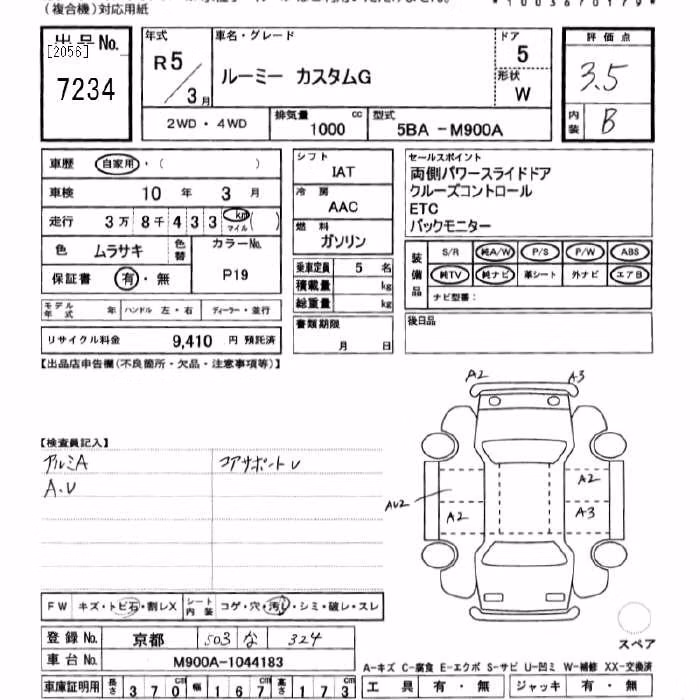 (複合機)対応用紙
出品No.
[2056]
7234
年式
R5/3月
車名・グレード
ルーミー カスタムG
ドア
5
形状
W
評価点
3.5
内装
B
2WD・4WD
排気量
1000 cc
型式
5BA -M900A
車歴 自家用・( )
車検 10 年 3 月
走行 3万 8千 4 3 3 km マイル ( )
色 ムラサキ 色替
カラーNo.
P19
保証書 有・無
モデル年式 年 ハンドル 左・右 ディーラー・並行
リサイクル料金 9,410 円 預託済
シフト
IAT
冷房
AAC
燃料
ガソリン
乗車定員 5 名
積載量 kg
総重量 kg
書類期限
月 日
セールスポイント
両側パワースライドドア
クルーズコントロール
ETC
バックモニター
装備品
S/R 純A/W P/S P/W ABS
純TV 純ナビ 革シート 外ナビ エアB
ナビ型番:
後日品
【出品店申告欄(不良箇所・欠品・注意事項等)】
【検査員記入】
アルミA コアサポートU
A.U
A2 A3
A2
AU2
A2 A3
FW キズ・トビ石・割レX シート内装 コゲ・穴・汚レ・シミ・破レ・スレ
登録No. 京都 503 な 324
車台No. M900A-1044183
車庫証明用 長さ 370 cm 幅 167 cm 高さ 173 cm
スペア
A-キズ C-腐食 E-エクボ S-サビ U-凹ミ W-補修 XX-交換済
工具 有・無 ジャッキ 有・無